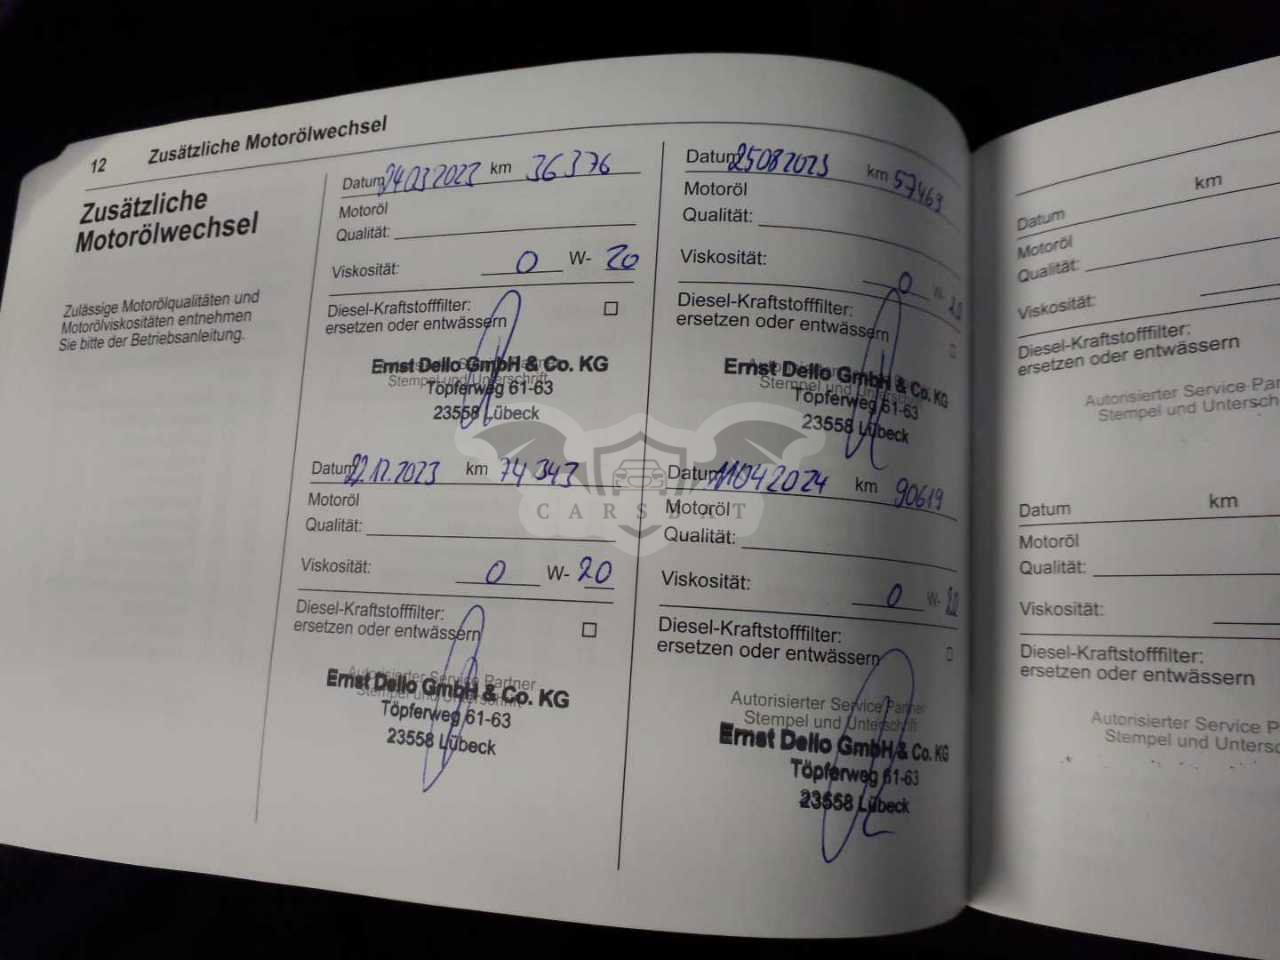 12 Zusätzliche Motorölwechsel
Zusätzliche
Motorölwechsel
Zulässige Motorölqualitäten und
Motorölviskositäten entnehmen
Sie bitte der Betriebsanleitung.
Datum 24032023 km 36376
Motoröl
Qualität:
Viskosität: 0 W- 20
Diesel-Kraftstofffilter:
ersetzen oder entwässern
Stempel und Unterschrift
Ernst Dello GmbH & Co. KG
Töpferweg 61-63
23558 Lübeck
Datum 22.12.2023 km 74343
Motoröl
Qualität:
Viskosität: 0 W- 20
Diesel-Kraftstofffilter:
ersetzen oder entwässern
Autorisierter Service Partner
Stempel und Unterschrift
Ernst Dello GmbH & Co. KG
Töpferweg 61-63
23558 Lübeck
Datum 25082023 km 57463
Motoröl
Qualität:
Viskosität: 0 W- 20
Diesel-Kraftstofffilter:
ersetzen oder entwässern
Ernst Dello GmbH & Co. KG
Töpferweg 61-63
23558 Lübeck
Datum 11042024 km 90619
Motoröl
Qualität:
Viskosität: 0 W- 20
Diesel-Kraftstofffilter:
ersetzen oder entwässern
Autorisierter Service Partner
Stempel und Unterschrift
Ernst Dello GmbH & Co. KG
Töpferweg 61-63
23558 Lübeck
CARSBAT
Datum km
Motoröl
Qualität:
Viskosität:
Diesel-Kraftstofffilter:
ersetzen oder entwässern
Autorisierter Service Par
Stempel und Untersch
Datum km
Motoröl
Qualität:
Viskosität:
Diesel-Kraftstofffilter:
ersetzen oder entwässern
Autorisierter Service P
Stempel und Untersc